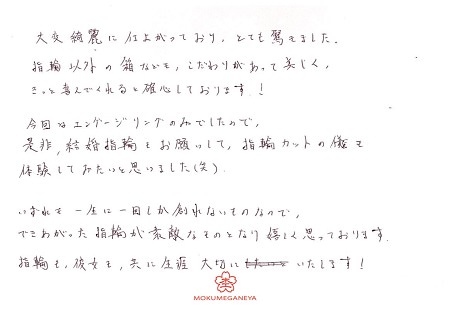 大変綺麗に仕上がっており、とても驚きました。
指輪以外の箱なども、こだわりがあって美しく、
きっと喜んでくれると確心しております！
今回はエンゲージリングのみでしたので、
是非、結婚指輪もお願いして、指輪カットの儀も
体験してみたいと思いました(笑)。
いずれも一生に一回しか創れないものなので、
でこあがった指輪が素敵なものとなり嬉しく思っております。
指輪も、彼女も、共に生涯大切にいたします！
MOKUMEGANEYA